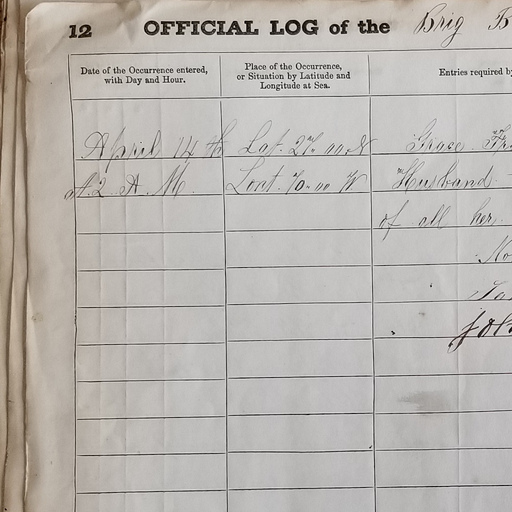 12 OFFICIAL LOG of the Brig B
Date of the Occurrence entered,
with Day and Hour.
Place of the Occurrence,
or Situation by Latitude and
Longitude at Sea.
Entries required by
April 14th Lat. 27.00 N Grace
At 2 A M Lont. 70.00 W Husband
of all her